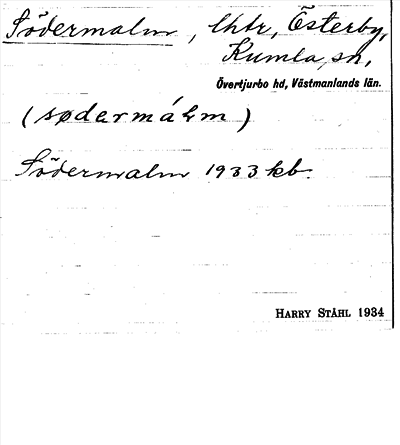 Södermalm, lhtr, Österby,
Kumla sn,
Övertjurbo hd, Västmanlands län.
(sødarmálm)
Södermalm 1933 kb.
HARRY STÅHL 1934